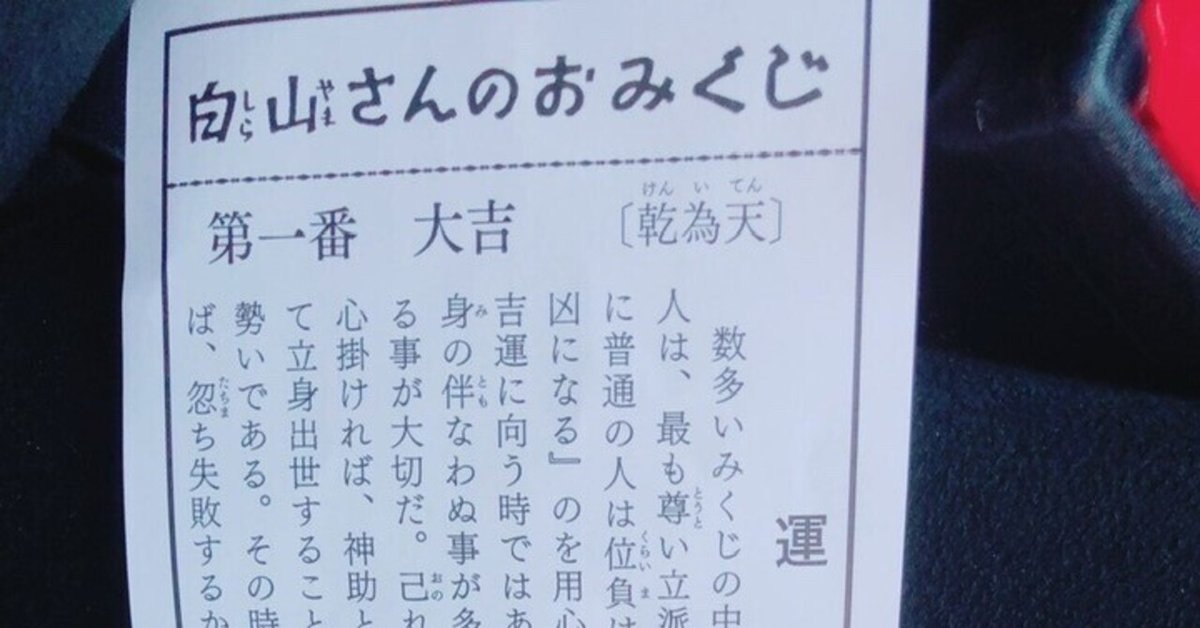 白山さんのおみくじ
しら
やま
第一番　大吉　〔乾為天〕
けん　い　てん
運
数多いみくじの中
人は、最も尊い立派
とうと
に普通の人は位負け
くらいま
凶になる』のを用心
吉運に向う時ではあ
身の伴なわぬ事が多
み
とも
る事が大切だ。己れ
おの
心掛ければ、神助と
て立身出世すること
勢いである。その時
ば、忽ち失敗するか
たちま